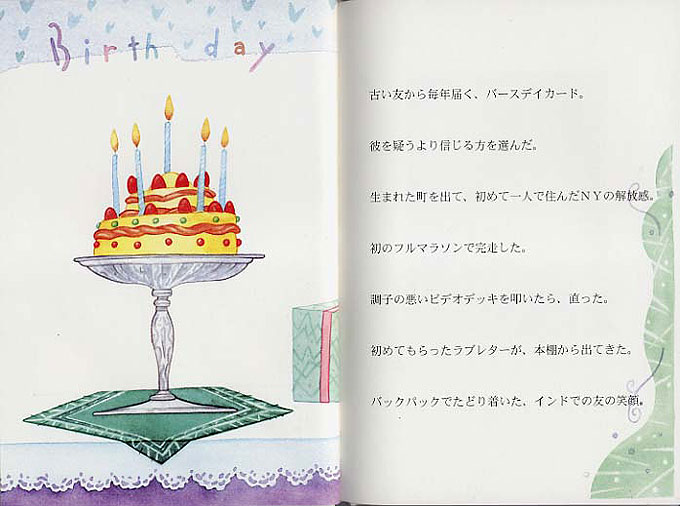 Birth day
古い友から毎年届く、バースデイカード。
彼を疑うより信じる方を選んだ。
生まれた町を出て、初めて一人で住んだＮＹの解放感。
初のフルマラソンで完走した。
調子の悪いビデオデッキを叩いたら、直った。
初めてもらったラブレターが、本棚から出てきた。
バックパックでたどり着いた、インドでの友の笑顔。